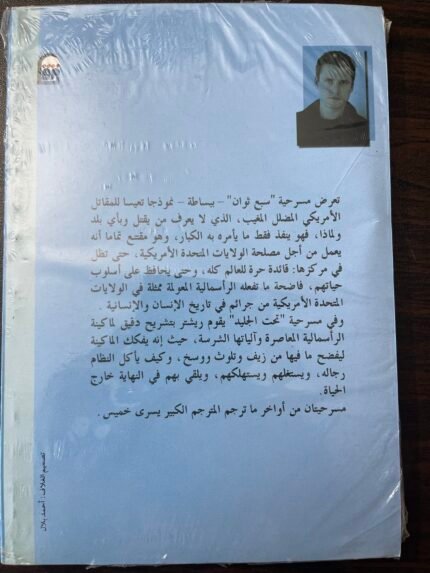 تعرض مسرحية "سبع ثوان" – ببساطة – نموذجا تعيسا للمقاتل
الأمريكي المضلل المغيب، الذي لا يعرف من يقتل وبأي بلد
ولماذا، فهو ينفذ فقط ما يأمره به الكبار، وهو مقتنع تماما أنه
يعمل من أجل مصلحة الولايات المتحدة الأمريكية، حتى تظل
في مركزها: قائدة حرة للعالم كله، وحتى يحافظ على أسلوب
حياتهم، فاضحة ما تفعله الرأسمالية المعولمة ممثلة في الولايات
المتحدة الأمريكية من جرائم في تاريخ الإنسان والإنسانية .
وفي مسرحية "تحت الجليد" يقوم ريشتر بتشريح دقيق لماكينة
الرأسمالية المعاصرة وآلياتها الشرسة، حيث إنه يفكك الماكينة
ليفضح ما فيها من زيف وتلوث ووسخ، وكيف يأكل النظام
رجاله، ويستغلهم ويستهلكهم، ويلقي بهم في النهاية خارج
الحياة.
مسرحيتان من أواخر ما ترجم المترجم الكبير يسرى خميس .
تصميم الغلاف: أحمد بلال